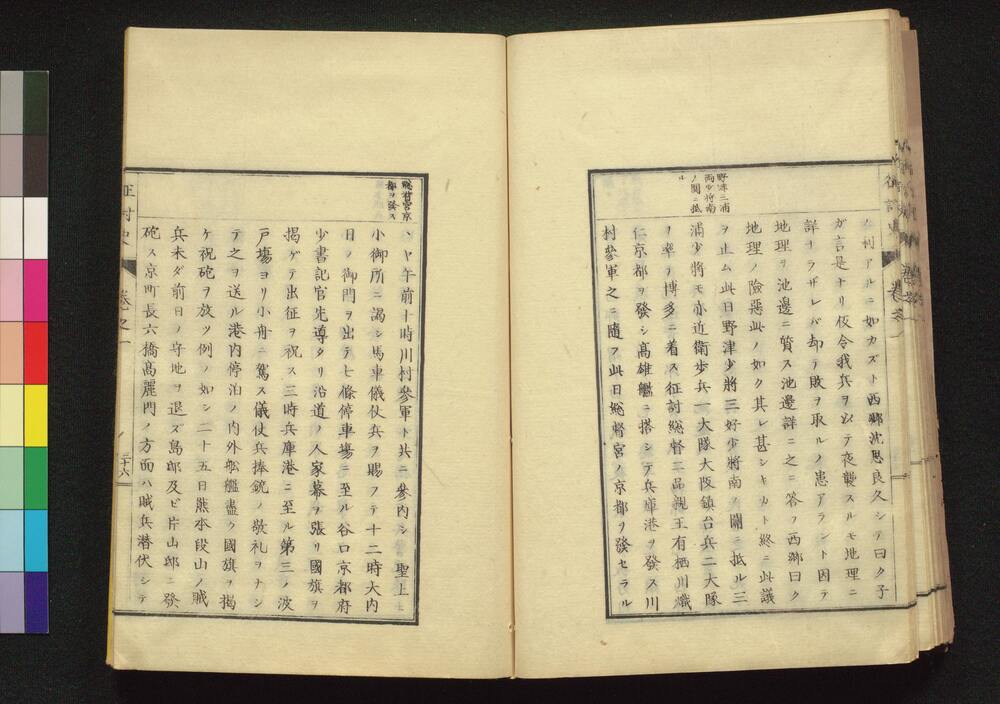 野津三浦
両少将南
ノ關ニ抵
ル
ノ利アルニ如カズト西郷沈思良久シテ曰ク子
ガ言是ナリ仮令我兵ヲ以テ夜襲スルモ地理ニ
詳ナラザレバ却テ敗ヲ取ルノ患アラント因テ
地理ヲ池邊ニ質ス池邊詳ニ之ニ答フ西郷曰ク
地理ノ險惡此ノ如ク其レ甚シキカト終ニ此議
ヲ止ム此日野津少將三好少將南ノ關ニ抵ル三
浦少將モ亦近衛歩兵一大隊大阪鎮台兵二大隊
ヲ率テ博多ニ着ス征討総督二品親王有栖川熾
仁京都ヲ發シ高雄艦ニ搭シテ兵庫港ヲ發ス川
村參軍之ニ隨フ此日総督宮ノ京都ヲ發セラル
総督宮京
都ヲ發ス
ヽヤ午前十時川村參軍ト共ニ參内シ 聖上ニ
小御所ニ謁シ馬車儀仗兵ヲ賜フテ十二時大内
日ノ御門ヲ出テ七條停車場ニ至ル谷口京都府
少書記官先導タリ沿道ノ人家幕ヲ張リ國旗ヲ
揭ゲテ出征ヲ祝ス三時兵庫港ニ至ル第三ノ波
戸場ヨリ小舟ニ駕ス儀仗兵捧銃ノ敬礼ヲナシ
テ之ヲ送ル港内停泊ノ内外舩艦盡ク國旗ヲ揭
ケ祝砲ヲ放ツ例ノ如シ二十五日熊本段山ノ賊
兵未ダ前日ノ守地ヲ退ズ島邸及ビ片山邸ニ發
砲ス京町長六橋高麗門ノ方面ハ賊兵潜伏シテ
征討史 卷之一
三十六